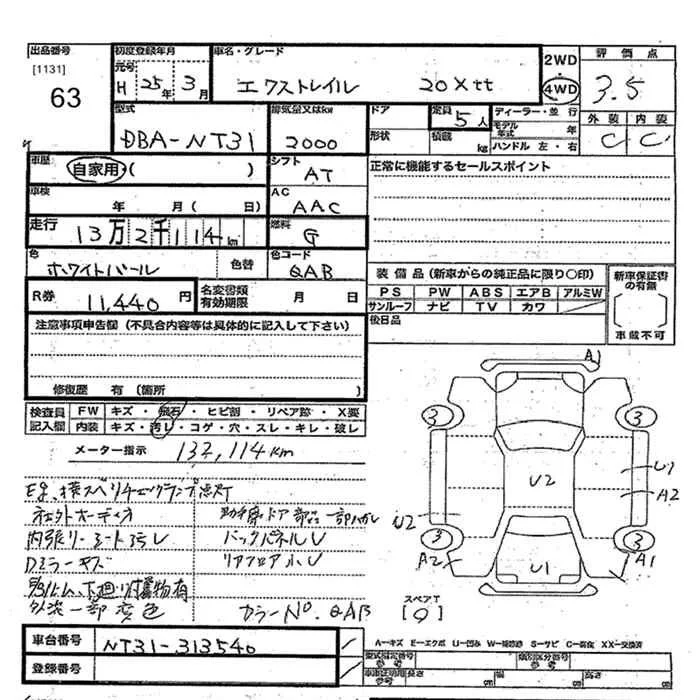 出品番号 初度登録年月 車名・グレード 2WD 評価点
[1131] 元号 4WD
63 H 25年 3月 エクストレイル 20Xtt 3.5
型式 排気量又はkw ドア 定員 5人 ディーラー・並行 外装 内装
DBA-NT31 2000 形状 積載 kg モデル年式 年 C C
ハンドル 左・右
車歴 自家用・( ) シフト AT 正常に機能するセールスポイント
車検 年 月(日) AC AAC
走行 13万2千114km 燃料 G
色 ホワイトパール 色替 色コード QAB
装備品(新車からの純正品に限り○印) 新車保証書の有無
R券 11,440円 名変書類有効期限 月 日 PS PW ABS エアB アルミW
サンルーフ ナビ TV カワ
後日品 車載不可
注意事項申告欄(不具合内容等は具体的に記入して下さい)
修復歴 有(箇所 )
検査員記入欄 FW キズ・飛石・ヒビ割・リペア跡・X要
内装 キズ・汚レ・コゲ・穴・スレ・キレ・破レ
メーター指示 132,114km
A1
3 3
U2 U1
A2
U2
3 3
A2 U1 A1
社外オーディオ 助手席ドア部品一部ハガレ
内張リ・シート汚レ バックパネルU
Dミラーキズ リアフロア小U
下廻リ付属物有
外装一部変色 カラーNo. QAB
スペアT
[9]
車台番号 NT31-313540
A―キズ E―エクボ U―凹み W―補修跡 S―サビ C―腐食 XX―交換済
登録番号 型式指定番号 参考 類別区分番号 参考
車車証明用長さ 参考 cm 幅 cm 高さ cm